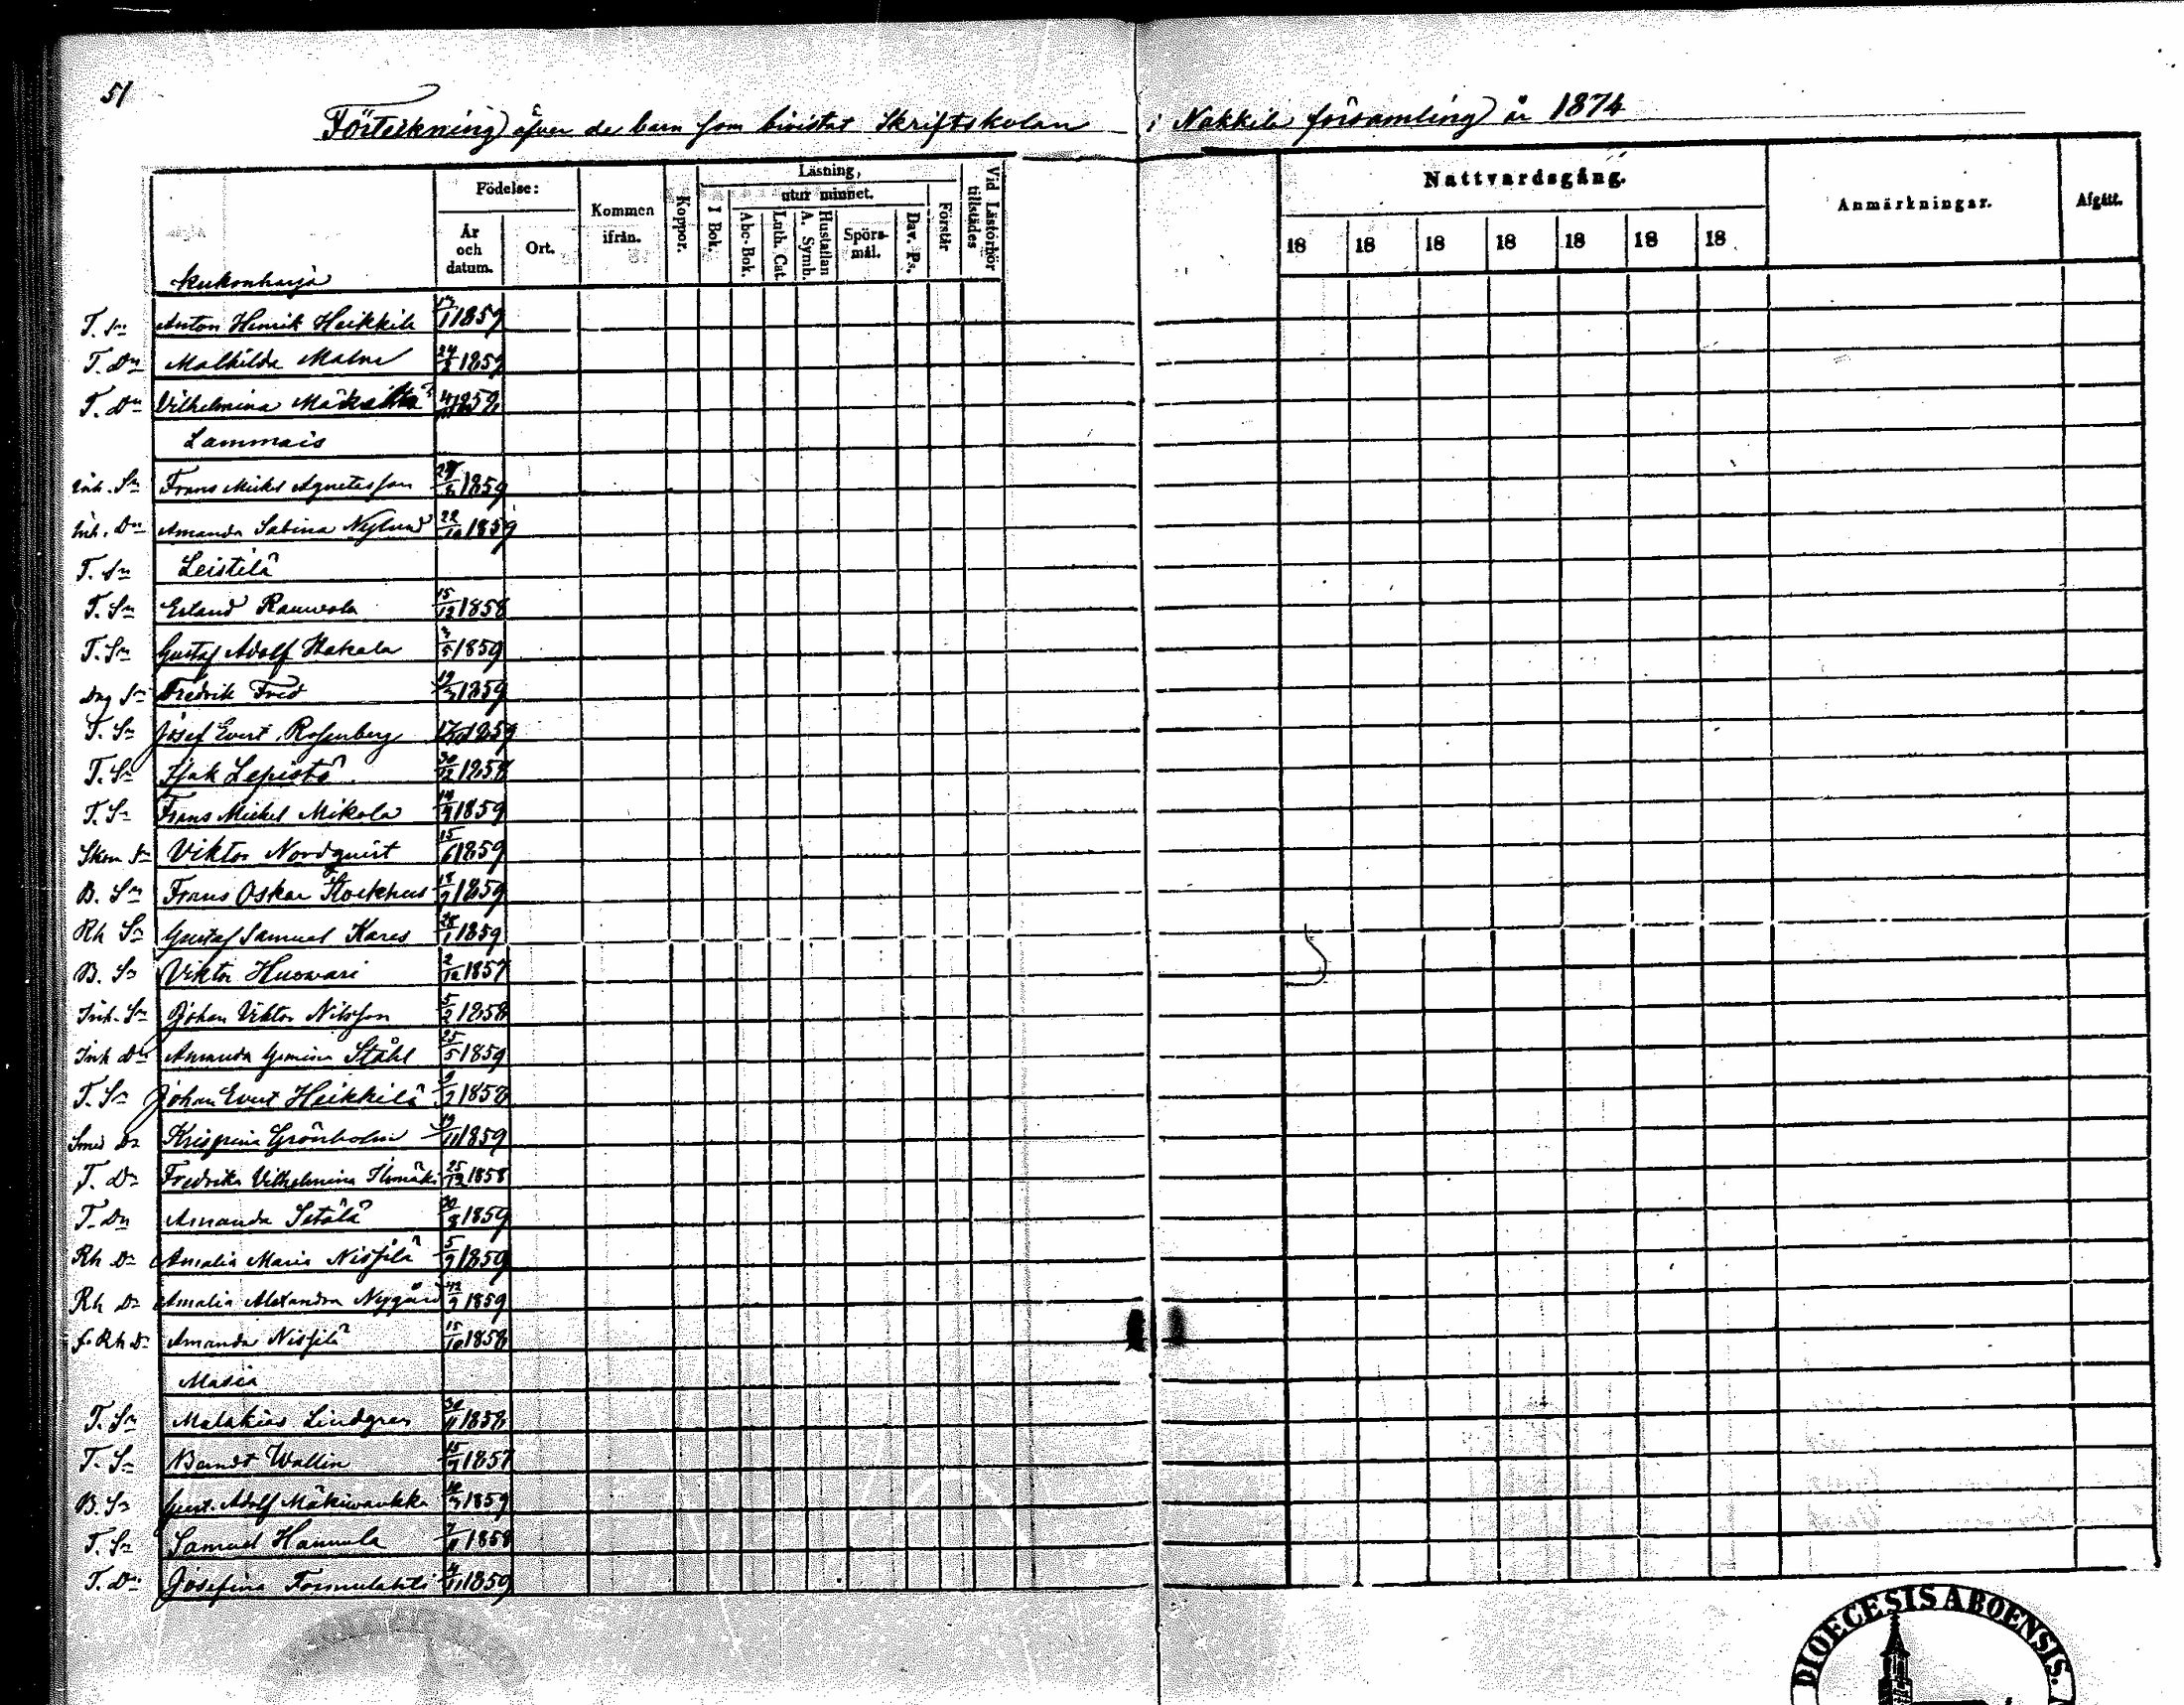 51
Förteckning öfver de barn som bivistat Skriftskolan i Nakkila församling år 1874
Födelse:
År och datum.
Ort.
Kommen ifrån.
Koppor.
Läsning,
I Bok.
utur minnet.
Abc-Bok.
Luth. Cat.
A. Symb. Hustaflan
Spörsmål.
Dav. Ps.
Förstår
Vid Läsförhör tillstädes
Nattvardsgång.
18 18 18 18 18 18 18
Anmärkningar.
Afgått.
Kukonharja
T. Sn Anton Henrik Heikkilä 1859
T. Dn Mathilda Malm 1859
T. Dn Vilhelmina 1859
Lammais
Inh. Sn Frans Mickel Agnetesson 1859
Inh. Dn Amanda Sabina Nylund 22/10 1859
T. Sn Leistilä
T. Sn Erland Rauvola 15/12 1858
T. Sn Gustaf Adolf Hakala 1859
Dng Sn Fredrik Fred 1859
T. Sn Josef Evert Rosenberg 1859
T. Sn Isak Lepistö 30/12 1858
T. Sn Frans Mickel Mikola 1859
Skom Sn Viktor Nordquist 15/6 1859
B. Sn Frans Oskar Stockhus 1859
Rh Sn Gustaf Samuel Kares 28/1 1859
B. Sn Viktor Huovari 2/12 1857
Inh. Sn Johan Viktor Nilsson 1858
Inh Dn Amanda Ståhl 25/5 1859
T. Sn Johan Evert Heikkilä 1858
Smed Dn Krispina Grönholm 1859
T. Dn Fredrika Vilhelmina 25/12 1858
T. Dn Amanda Setälä 30/8 1859
Rh Dn Amalia Maria Nissilä 1859
Rh Dn Amalia Alexandra Nygård 1859
f. Rh Dn Amanda Nissilä 15/10 1858
Masia
T. Sn Malakias Lindgren 30/11 1858
T. Sn Berndt Wallin 1857
B. Sn Gust. Adolf 1859
T. Sn Samuel Hannula 1858
T. Dn Josefina 1859
DIOECESIS ABOENSIS.